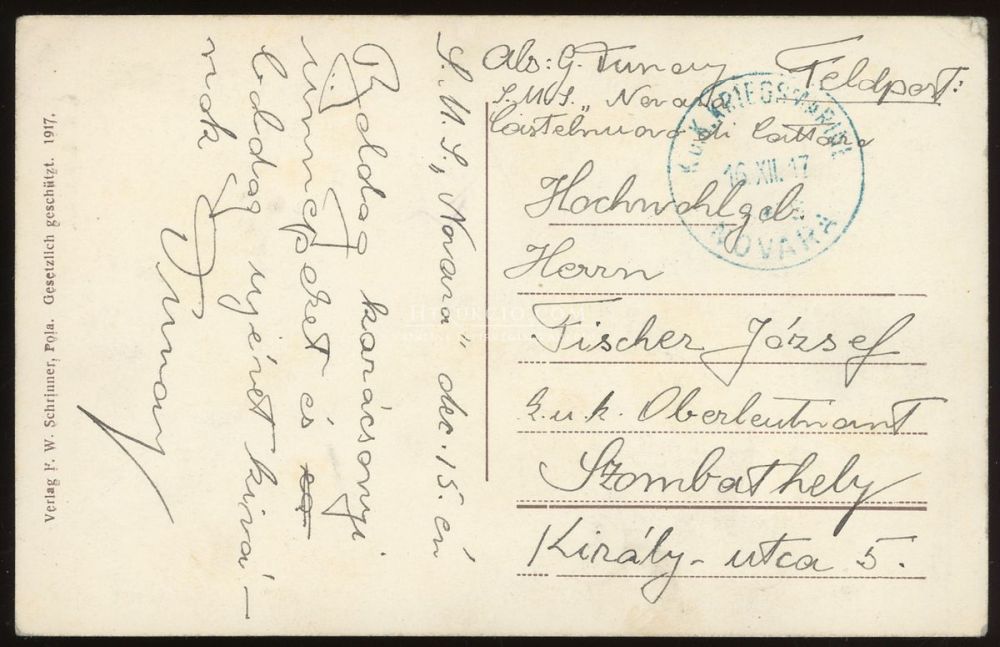 Abs: G. Dunay
Feldpost:
S.M.S. „Novara"
Castelnuovo di Cattaro
K.u.K. KRIEGSMARINE
16.XII.17
NOVARA
Hochwohlgeb.
Herrn
Fischer József
k.u.k. Oberleutnant
Szombathely
Király-utca 5.
S.M.S. „Novara" dec. 15.én
Boldog karácsonyi
ünnepeket és
boldog ujévet kivá-
nok
Dunay
Verlag F. W. Schrinner, Pola. Gesetzlich geschützt. 1917.